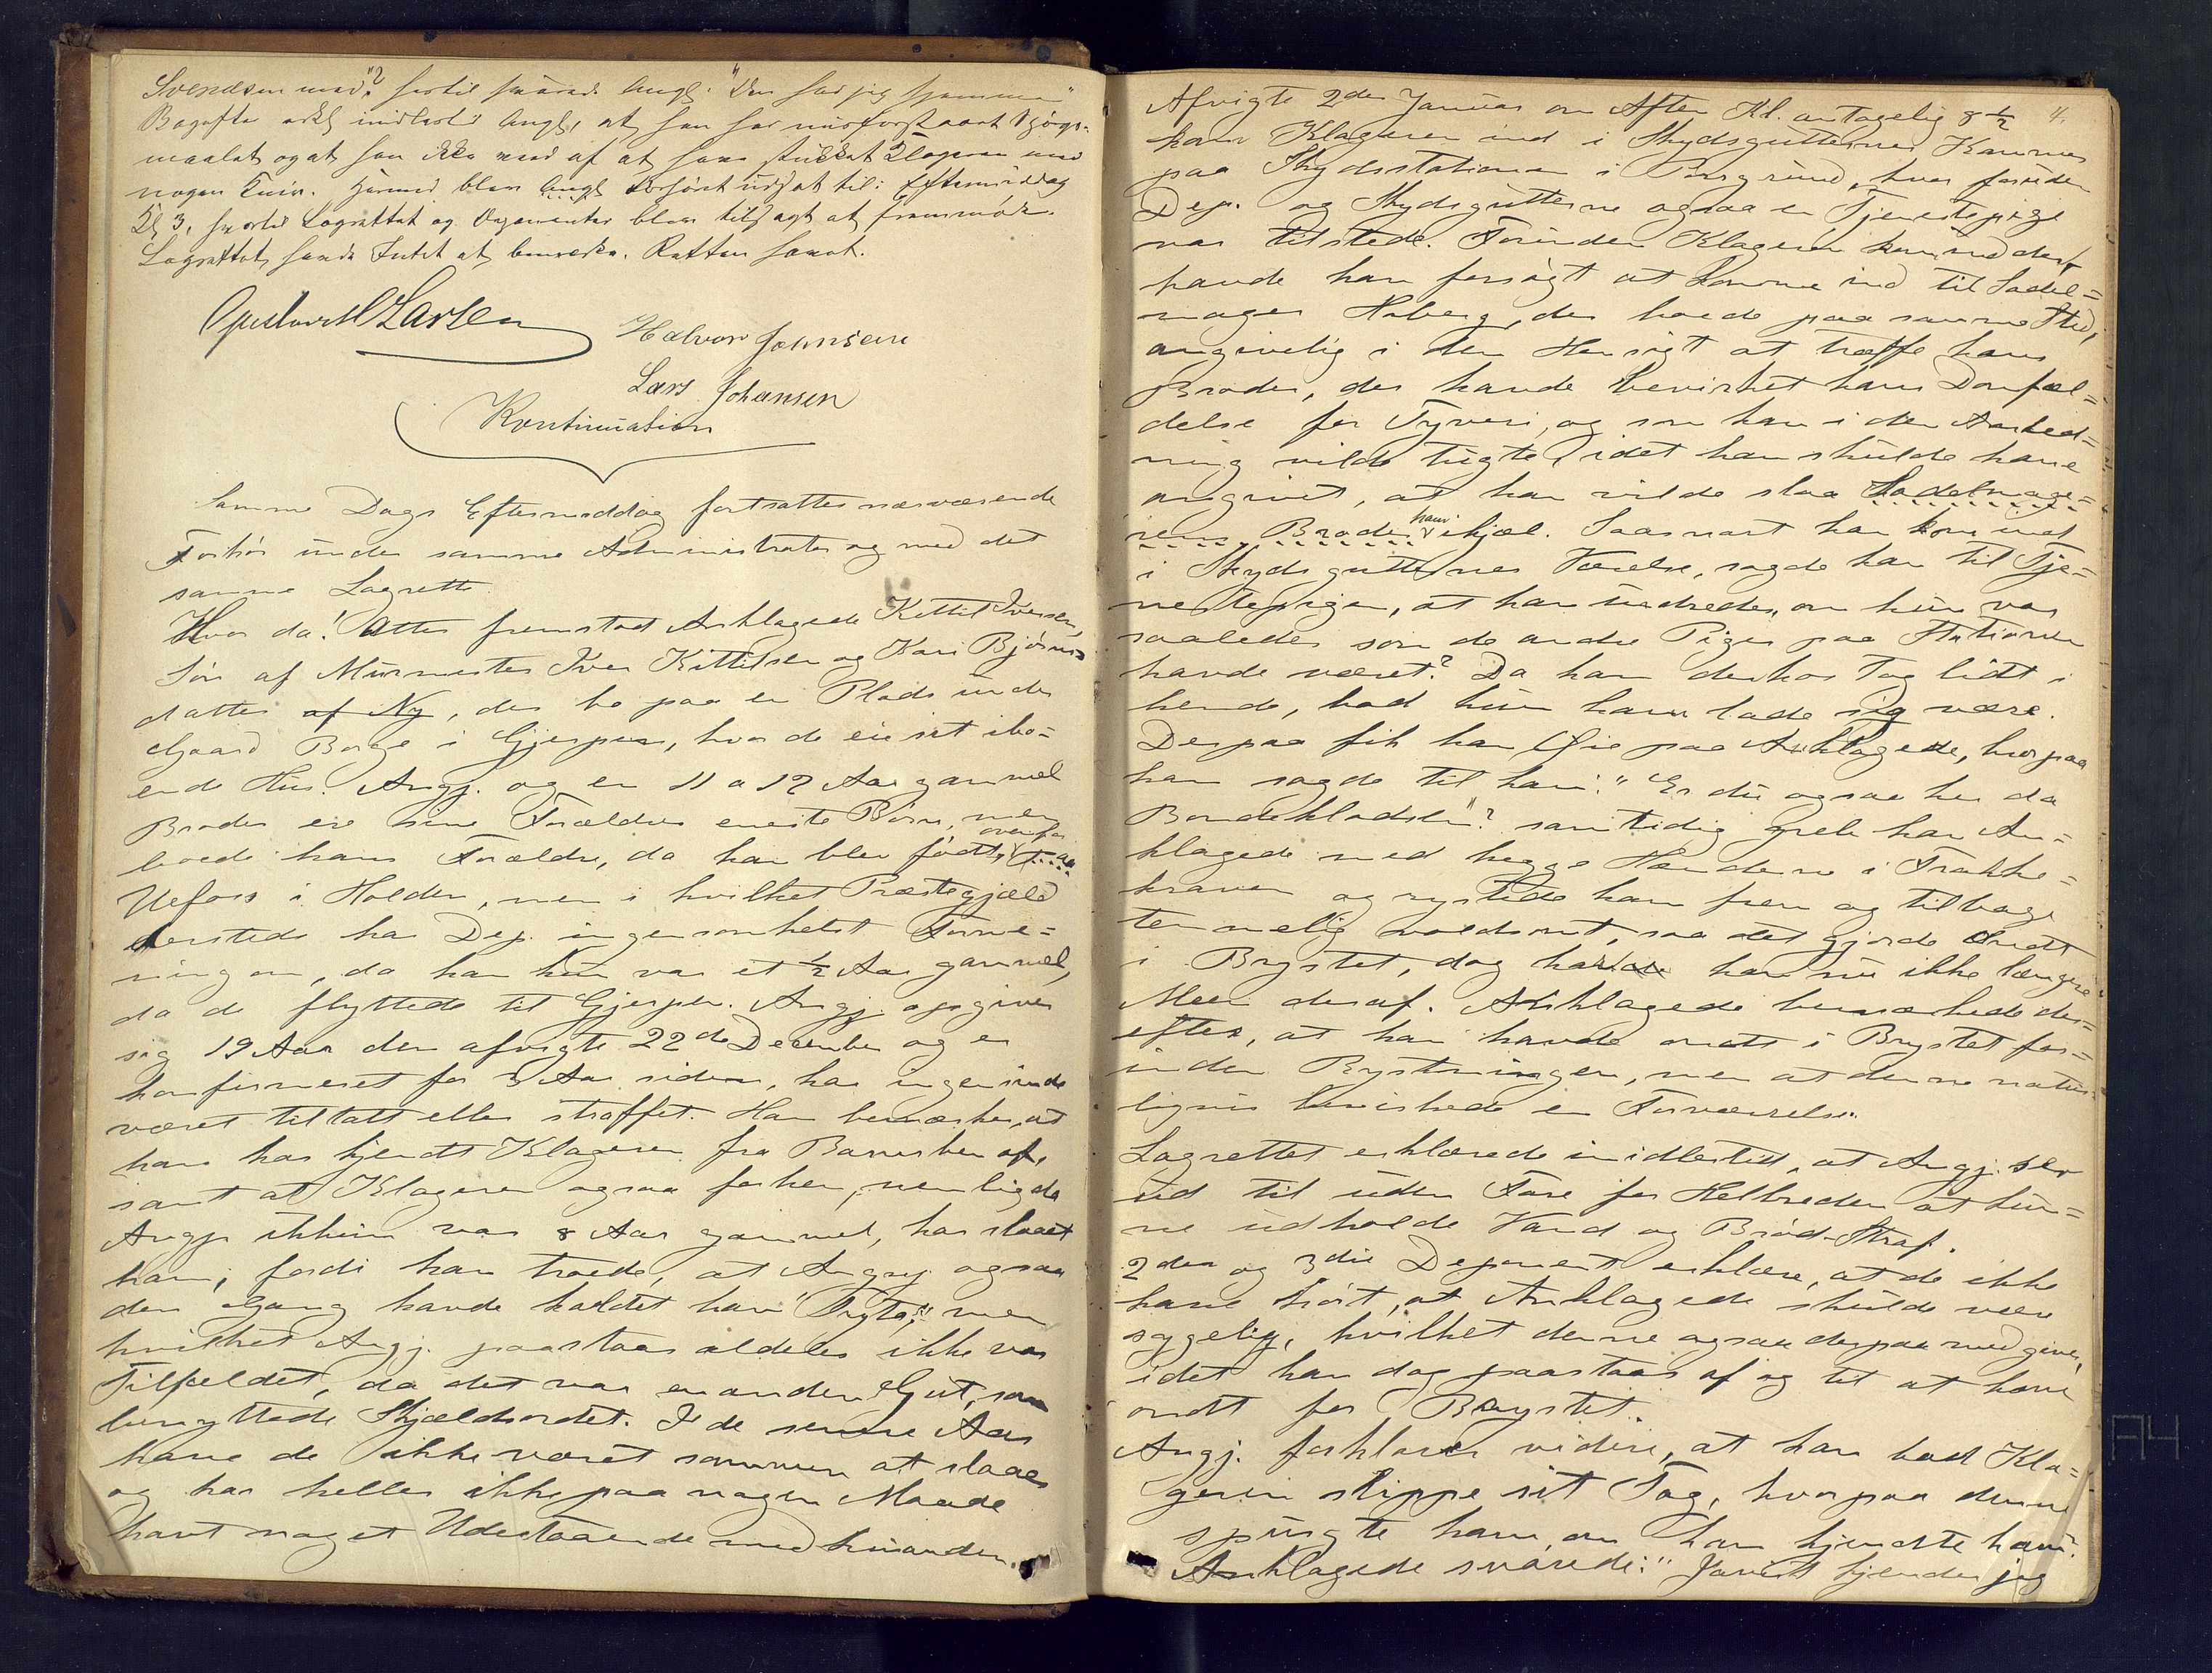 Svendsen med"? hertil svarede Angj: "Den har jeg hjemme"
Bagefter  imidlertid Angj, at han har misforstaaet Spörgs-
maalet og at han ikke ved af at have stukket Klageren med
nogen Kniv. Hermed blev Angj Forhöret udsat til i Eftermiddag
Kl 3, hvortil Lagrettet og Deponenter blev tilsagt at fremmöde.
Lagrettet havde Intet at bemærke. Retten hævet.
Larsen
Halvor Johnsen
Lars Johansen
Kontinuation
Samme Dags Eftermiddag fortsattes nærværende
Forhör under samme Administrator og med det
samme Lagrette
Hvor da! Atter fremstod Anklagede Kittil Iversen,
Sön af Murmester Iver Kittilsen og Kari Björns-
datter af Ny, der bo paa en Plads under
Gaard Borge i Gjerpen, hvor de eie sit ibo-
ende Hus. Angj. og en 11 a 12 Aar gammel
Broder ere sine Forældres eneste Börn, men
boede hans Forældre, da han blev födt, ovenfor
Ulefos i Holden, men i hvilket Præstegjæld
dersteds har Dep. ingensomhelst Forme-
ning om, da han kun var et ½ Aar gammel,
da de flyttede til Gjerpen. Angj. opgiver
sig 19 Aar den afvigte 22de December og er
konfirmeret for 3 Aar siden, har ingensinde
været tiltalt eller straffet. Han bemærker, at
han har kjendt Klageren fra Barnsben af,
samt at Klageren ogsaa forhen, nemlig da
Angj. ikkun var 8 Aar gammel, har slaaet
ham, fordi han troede, at Angj. ogsaa
den Gang havde kaldet ham "Tryta", men
hvilket Angj. paastaar aldeles ikke var
Tilfældet, da det var en anden Gut, som
benyttede Skjældsordet. I de senere Aar
have de ikke været sammen at slaaes
og har heller ikke paa nogen Maade
havt noget Udestaaende med hinanden.
4.
Afvigte 2den Januar om Aften Kl. antagelig 8 ½
kom Klageren ind i Skydsgutternes Kammer
paa Skydsstationen i Porsgrund, hvor foruden
Dep. og Skydsgutterne ogsaa en Tjenestepige
var tilstede. Forinden Klageren kom ind der,
havde han forsögt at komme ind til Sadel-
mager Hoberg, der boede paa samme Sted,
angivelig i den Hensigt at træffe hans
Broder, der havde bevirket hans Domfæl-
delse for Tyveri, og som han i den Anled-
ning vilde tugte, idet han skulde have
angivet, at han vilde slaa Sadelmage-
rens Broder hans ihjæl. Saasnart han kom ind
i Skydsgutternes Værelse, sagde han til Tje-
nestepigen, at han undredes, om hun var
saaledes som de andre Piger paa Stationen
havde været? Da han derhos tog lidt i
hende, bad hun ham lade sig være.
Derpaa fik han Öie paa Anklagede, hvorpaa
han sagde til ham: "Er du ogsaa her da
Bondeklodsen"? samtidig greb han An-
klagede med begge Hænderne i Frakke-
kraven og rystede ham frem og tilbage
temmelig voldsomt, saa det gjorde ondt
i Brystet, dog har han nu ikke længere
Meen deraf. Anklagede bemærkede der-
efter, at han havde ondt i Brystet for-
inden Rystningen, men at denne natur-
ligvis bevirkede en Forværrelse.
Lagrettet erklærede imidlertid, at Angj. ser
ud til uden Fare for Helbreden at kun-
ne udholde Vand og Bröd-Straf.
2den og 3die Deponent erklære, at de ikke
have hört, at Anklagede skulde være
sygelig, hvilket denne ogsaa derpaa medgiver,
idet han dog paastaar af og til at have
ondt for Brystet.
Angj. forklarer videre, at han bad Kla-
geren slippe sit Tag, hvorpaa denne
spurgte ham, om han kjendte ham.
Anklagede svarede: "Javist kjender jeg